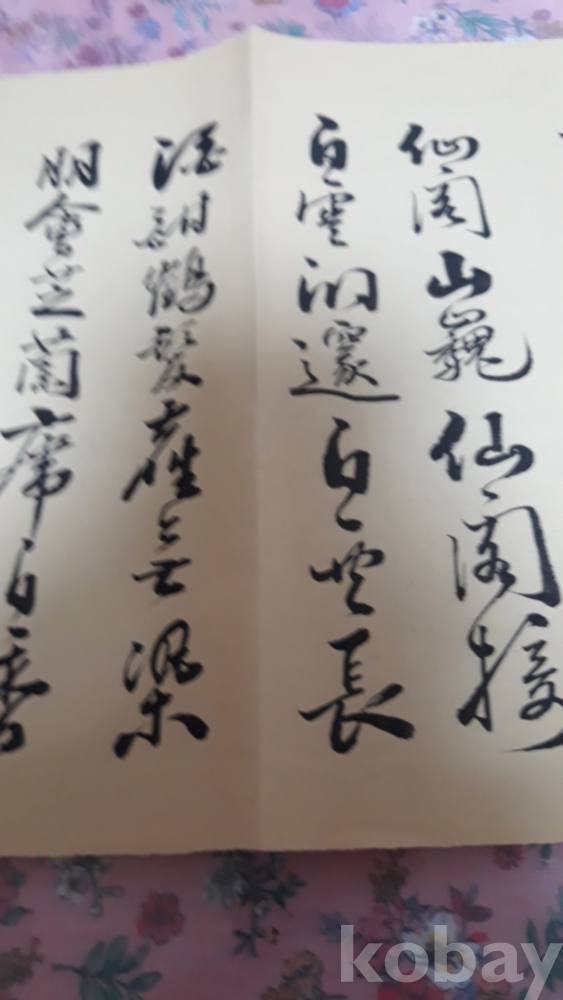 仙閣山巍仙閣接
白雲洞邃白雲長
酒鶴髮
朋會芝蘭席自香
kobay